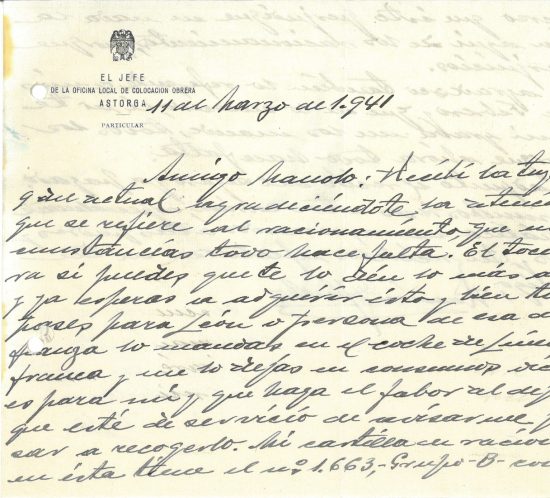 EL JEFE
DE LA OFICINA LOCAL DE COLOCACION OBRERA
ASTORGA
PARTICULAR
11 de Marzo de 1.941
Amigo Manolo: Recibí la tuya
actual agradeciéndote la atenc
que se refiere al racionamiento, que
cunstancias todo hace falta. El toci
ra si puedes que te lo dén lo más
y ya esperas a adquirir ésto y bien
pases para León o persona de esa
fianza lo mandas en el coche de Línea
franca y me lo dejas en consumos
es para mí y que haga el fabor al
que esté de servicio de avisarme
sar a recogerlo. Mi cartilla de racio
en ésta tiene el nº. 1.663,- Grupo-B-